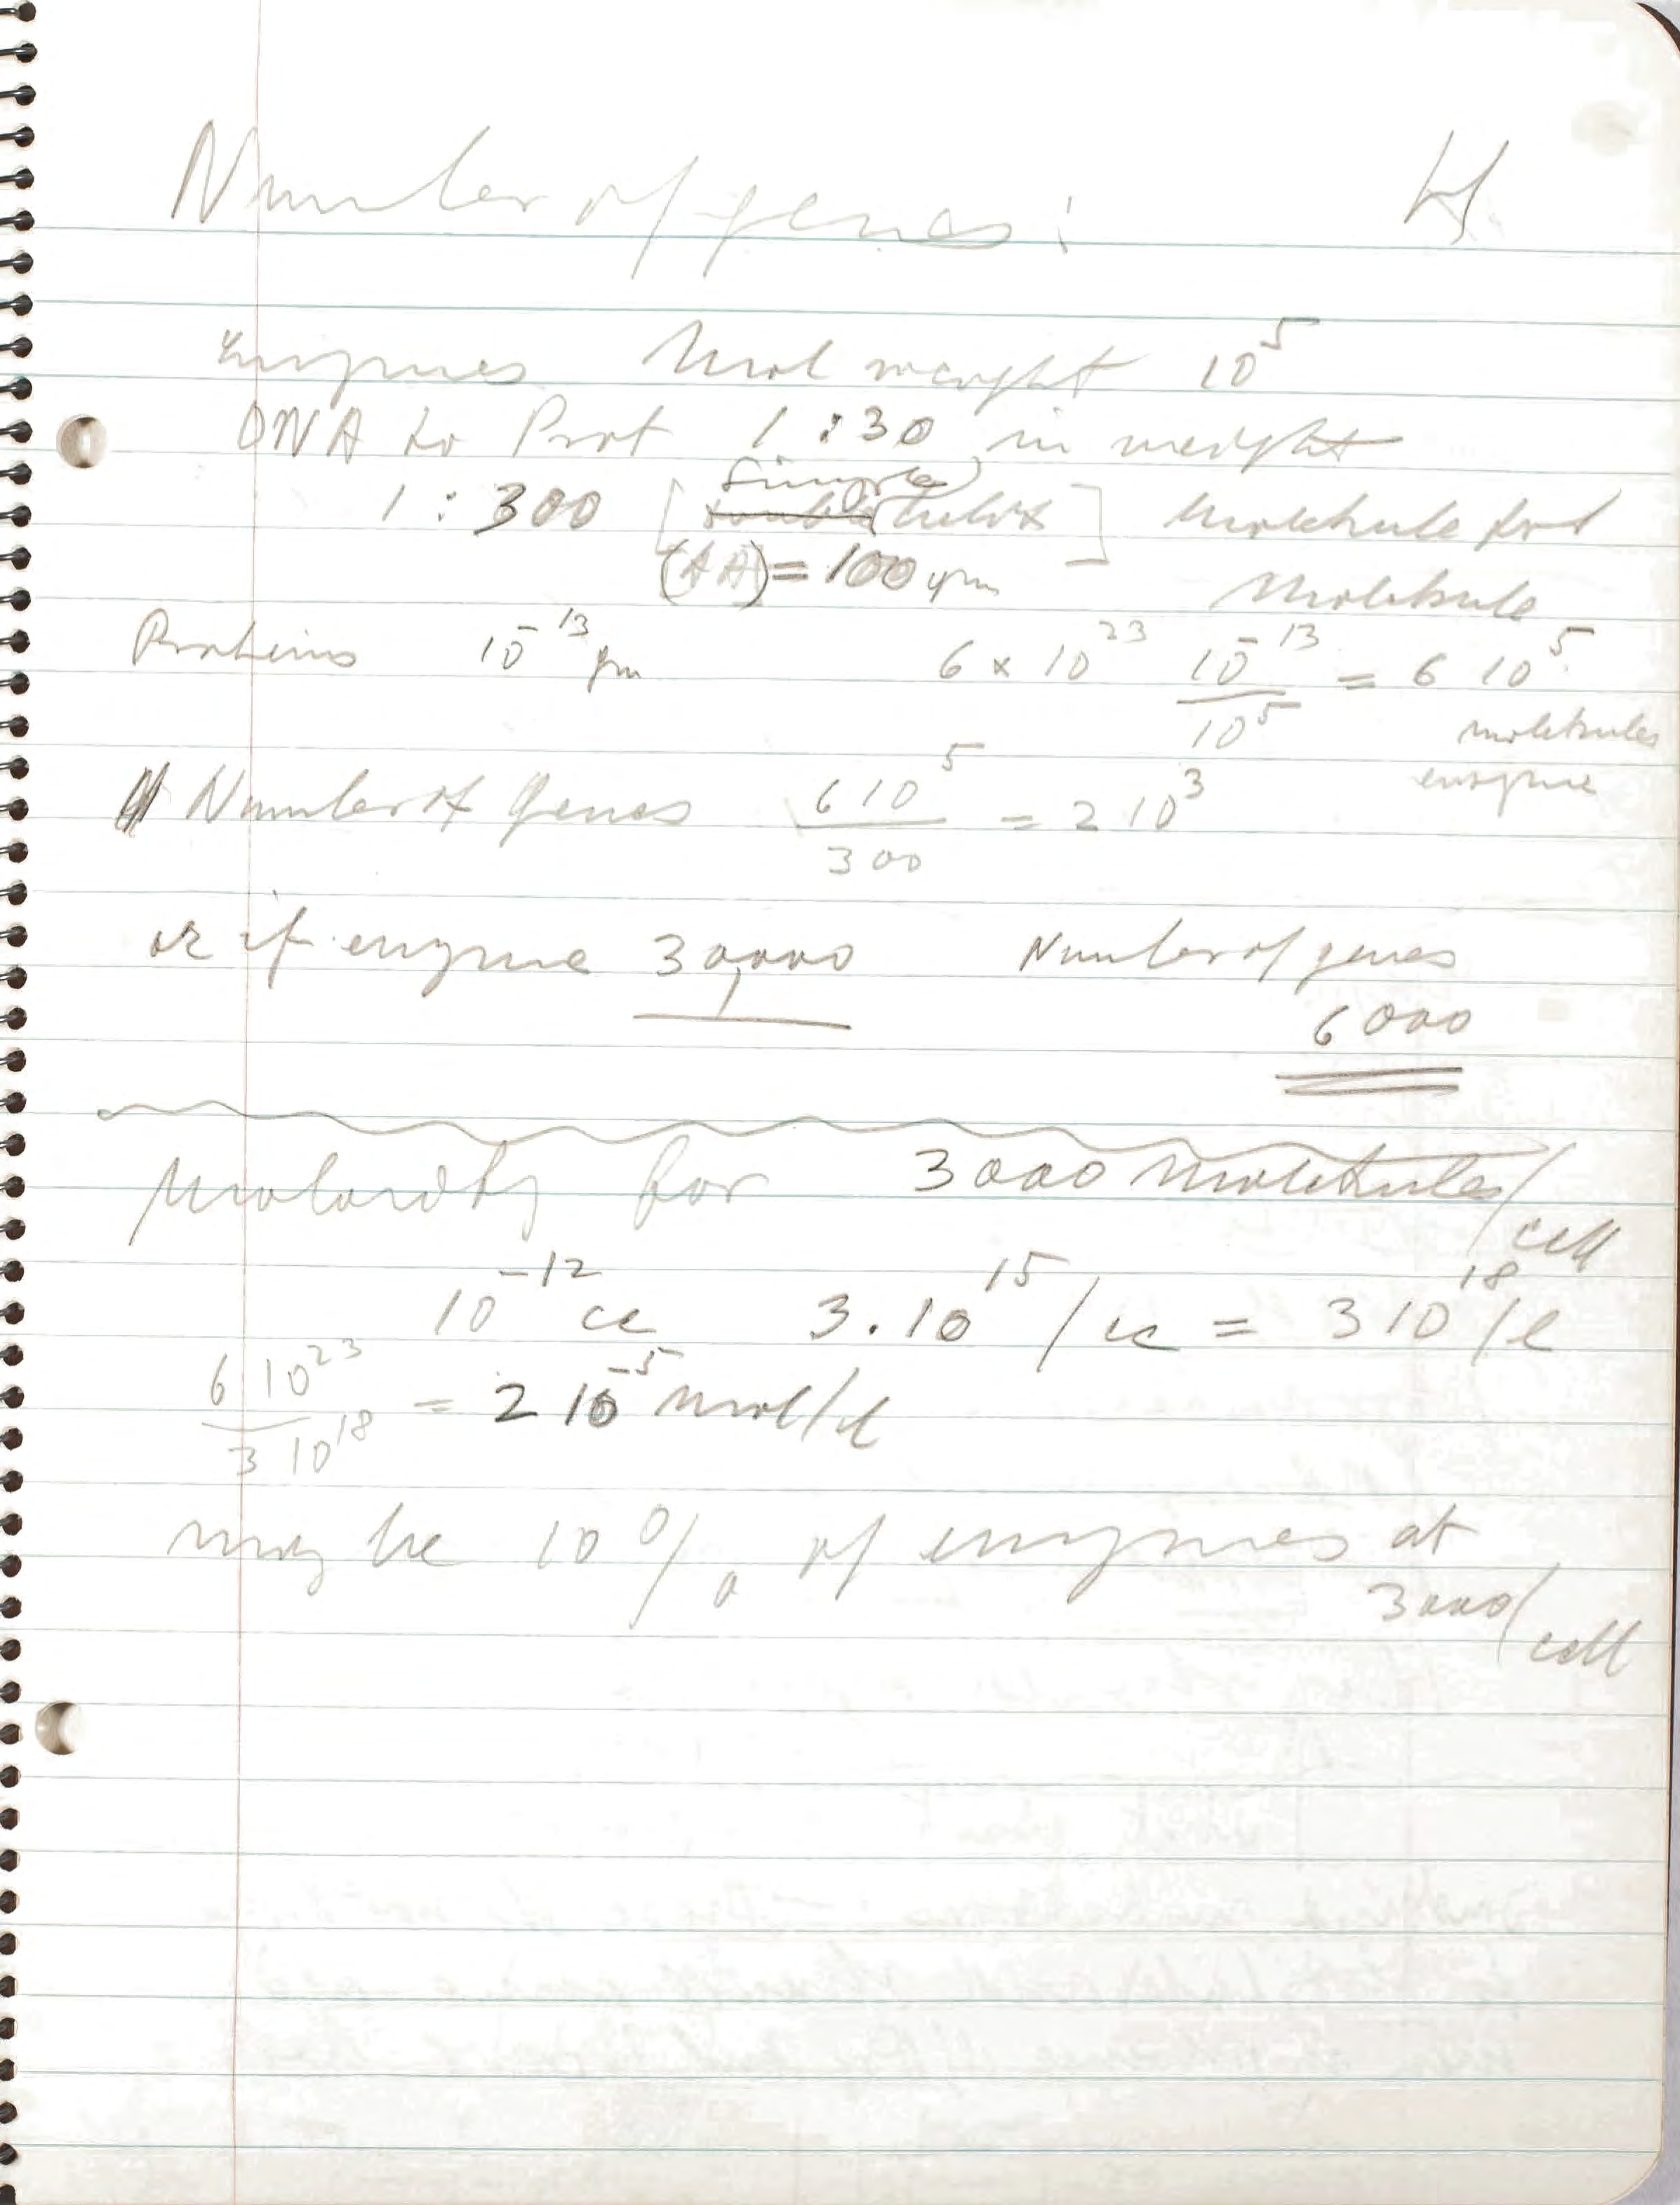 Number of genes:
Enzymes Mol weight 10^5
DNA to Prot 1:30 in weight
1:300 [single double helix] Molekule for
(AA) = 100 gm Molekule
Proteins 10^-13 gm 6 x 10^23 10^-13/10^5 = 6 10^5
molekules
enzyme
Number of genes 6 10^5/300 = 2 10^3
or if enzyme 30,000 Number of genes
6000
Molarity for 3000 molekules/
cell
10^-12 cc 3.10^15/cc = 3 10^18/l
6 10^23/3 10^18 = 2 10^-5 mol/l
may be 10% of enzymes at
3000/cell